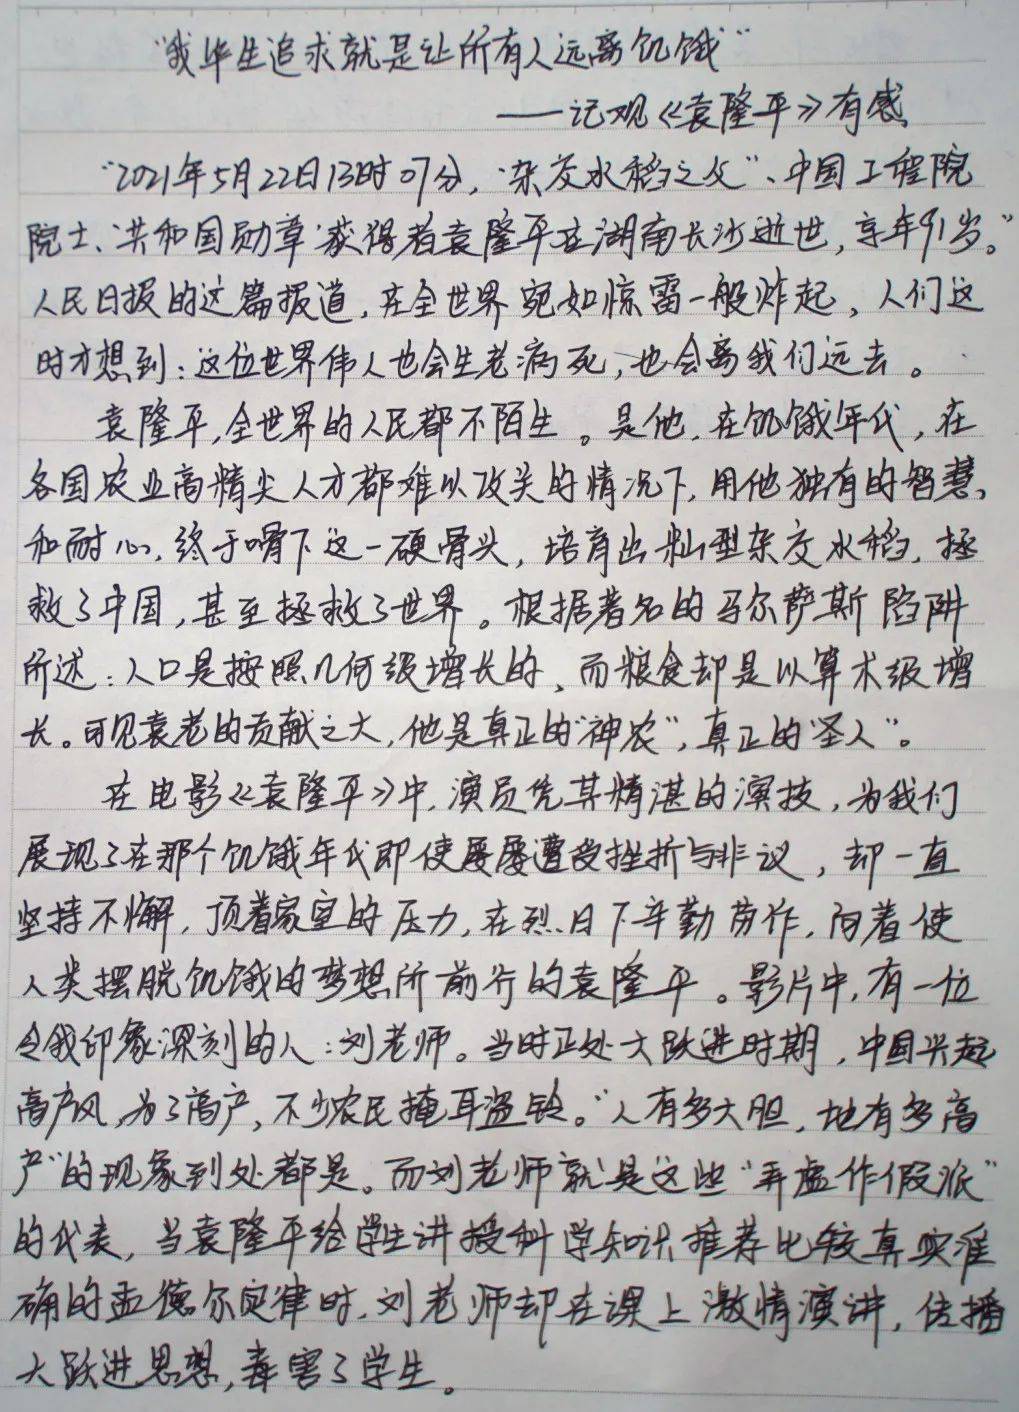 "我毕生追求就是让所有人远离饥饿"
——记观《袁隆平》有感
"2021年5月22日13时07分,'杂交水稻之父'、中国工程院
院士、'共和国勋章'获得者袁隆平在湖南长沙逝世,享年91岁。"
人民日报的这篇报道,在全世界宛如惊雷一般炸起,人们这
时才想到:这位世界伟人也会生老病死,也会离我们远去。
袁隆平,全世界的人民都不陌生。是他,在饥饿年代,在
各国农业高精尖人才都难以攻关的情况下,用他独有的智慧
和耐心,终于啃下这一硬骨头,培育出籼型杂交水稻,拯
救了中国,甚至拯救了世界。根据著名的马尔萨斯陷阱
所述:人口是按照几何级增长的,而粮食却是以算术级增
长。可见袁老的贡献之大,他是真正的"神农",真正的"圣人"。
在电影《袁隆平》中,演员凭其精湛的演技,为我们
展现了在那个饥饿年代即使屡屡遭受挫折与非议,却一直
坚持不懈,顶着家室的压力,在烈日下辛勤劳作,向着使
人类摆脱饥饿的梦想所前行的袁隆平。影片中,有一位
令我印象深刻的人:刘老师。当时正处大跃进时期,中国兴起
高产风,为了高产,不少农民掩耳盗铃。"人有多大胆,地有多高
产"的现象到处都是。而刘老师就是这些"弄虚作假派"
的代表,当袁隆平给学生讲授科学知识推荐比较真实准
确的孟德尔定律时,刘老师却在课上激情演讲,传播
大跃进思想,毒害了学生。